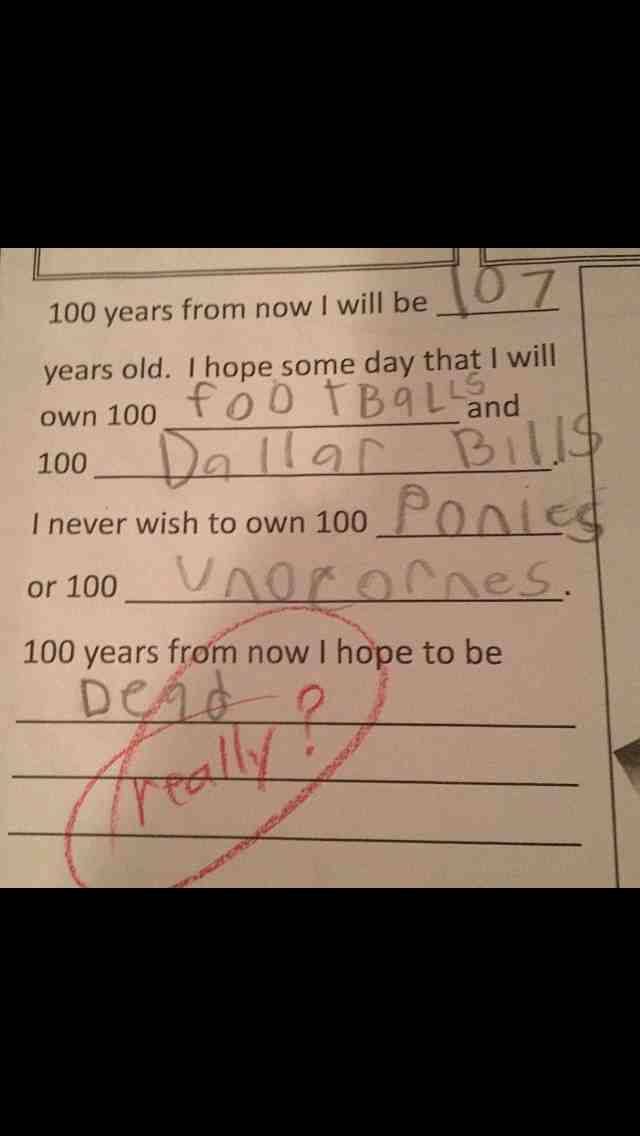 100 years from now I will be 107
years old. I hope some day that I will
own 100 footBalls and
100 Dallar Bills.
I never wish to own 100 Ponies
or 100 Unorcornes.
100 years from now I hope to be
Dead
really?